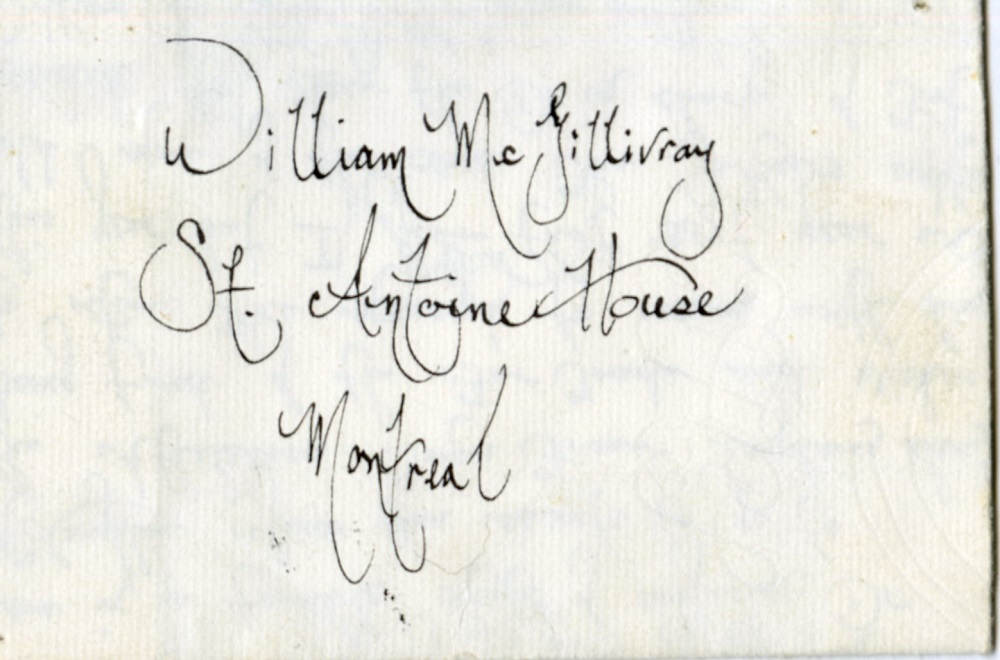 William McGillivray
St. Antoine House
Montreal